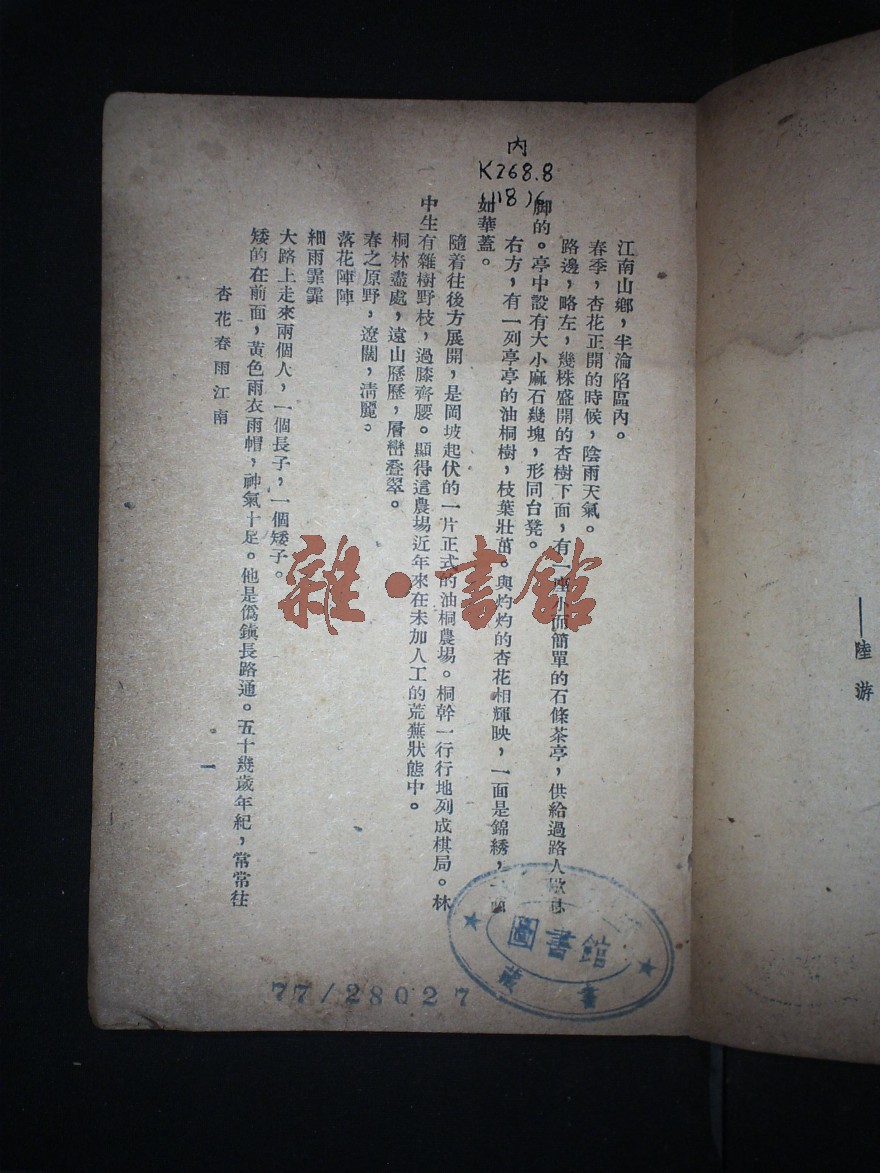 內
K268.8
(118)6
江南山鄉，半淪陷區內。
春季，杏花正開的時候，陰雨天氣。
路邊，略左，幾株盛開的杏樹下面，有一座小而簡單的石條茶亭，供給過路人歇息
脚的。亭中設有大小麻石幾塊，形同台凳。
右方，有一列亭亭的油桐樹，枝葉壯茁。與灼灼的杏花相輝映，一面是錦綉，一面
如華蓋。
隨着往後方展開，是岡坡起伏的一片正式的油桐農場。桐幹一行行地列成棋局。林
中生有雜樹野枝，過膝齊腰。顯得這農場近年來在未加人工的荒蕪狀態中。
桐林盡處，遠山歷歷，層巒叠翠。
春之原野，遼闊，清麗。
落花陣陣
細雨霏霏
大路上走來兩個人，一個長子，一個矮子。
矮的在前面，黃色雨衣雨帽，神氣十足。他是僞鎮長路通。五十幾歲年紀，常常往
杏花春雨江南
一
——陸游
雜·書館
圖書館
藏書
77/28027